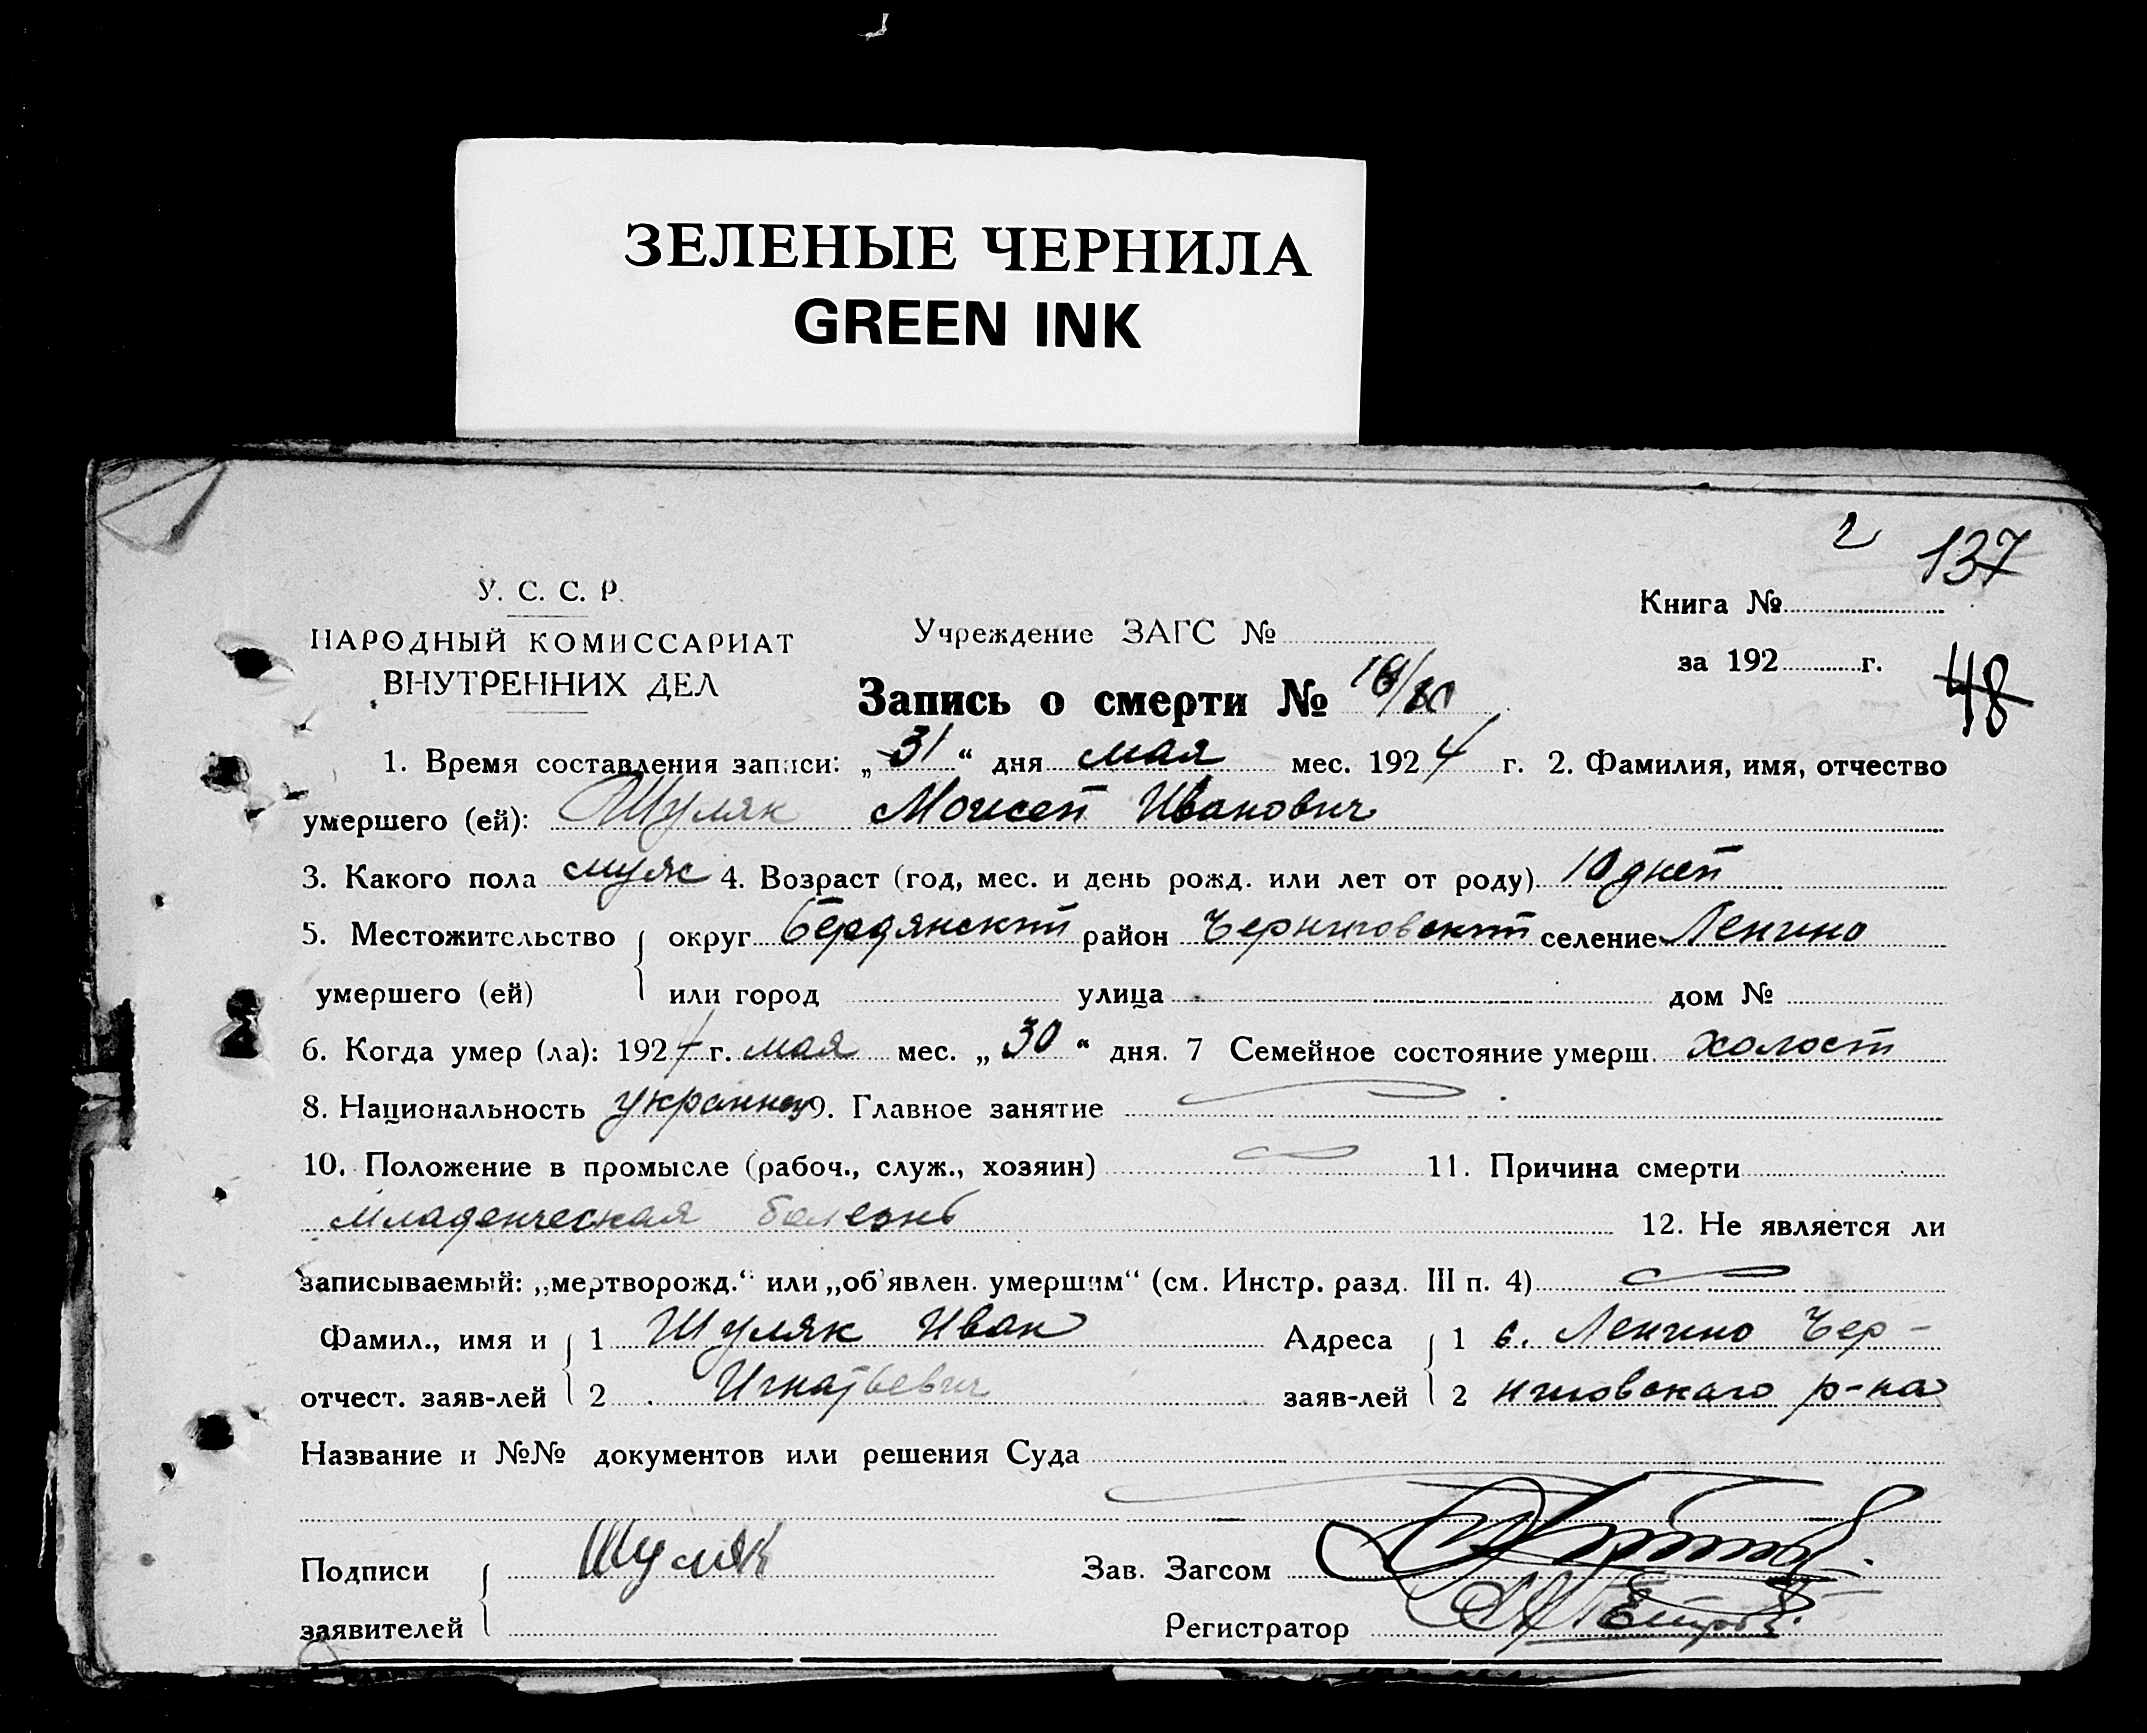 ЗЕЛЕНЫЕ ЧЕРНИЛА
GREEN INK
2 137
У. С. С. Р.
НАРОДНЫЙ КОМИССАРИАТ
ВНУТРЕННИХ ДЕЛ
Учреждение ЗАГС №
Книга №
за 192 г.
48
Запись о смерти №
1. Время составления записи: „31“ дня мая мес. 1924 г. 2. Фамилия, имя, отчество
умершего (ей): Шуляк Моисей Иванович
3. Какого пола муж 4. Возраст (год, мес. и день рожд. или лет от роду) 10 дней
5. Местожительство округ Бердянский район Черниговский селение Ленино
умершего (ей) или город улица дом №
6. Когда умер (ла): 1924 г. мая мес. „30“ дня. 7 Семейное состояние умерш. холост
8. Национальность украинец 9. Главное занятие
10. Положение в промысле (рабоч., служ., хозяин) 11. Причина смерти
Младенческая болезнь 12. Не является ли
записываемый: „мертворожд.“ или „об'явлен. умершим“ (см. Инстр. разд. III п. 4)
Фамил., имя и 1 Шуляк Иван Адреса 1 с. Ленино Чер-
отчест. заяв-лей 2 Игнатьевич заяв-лей 2 ниговскаго р-на
Название и №№ документов или решения Суда
Подписи Шуляк Зав. Загсом
заявителей Регистратор